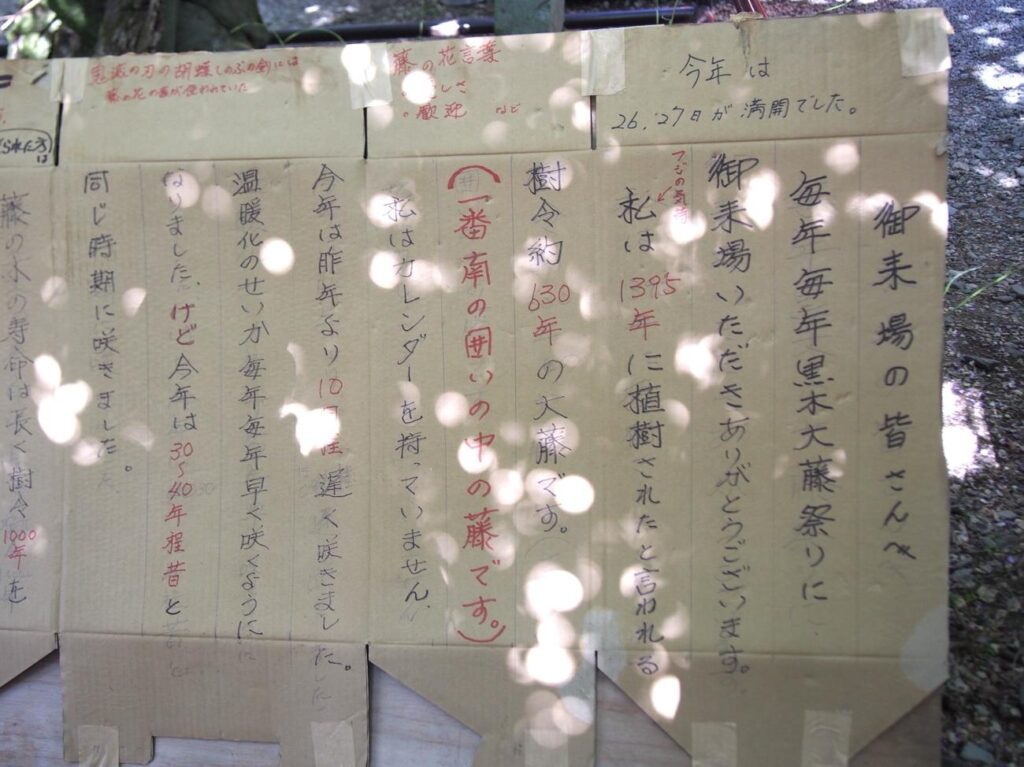 今年は
26,27日が満開でした。
藤の花言葉
歓迎 など
鬼滅の刃の胡蝶しのぶの剣には
藤の花の毒が使われていた
御来場の皆さんへ
毎年毎年黒木大藤祭りに
御来場いただきありがとうございます。
フジの気持
私は1395年に植樹されたと言われる
樹令約630年の大藤です。
(一番南の囲いの中の藤です。)
私はカレンダーを持っていません、
今年は昨年より10日程遅く咲きました。
温暖化のせいか毎年毎年早く咲くように
なりました、けど今年は30~40年程昔と
同じ時期に咲きました。
藤の木の寿命は長く樹令1000年を